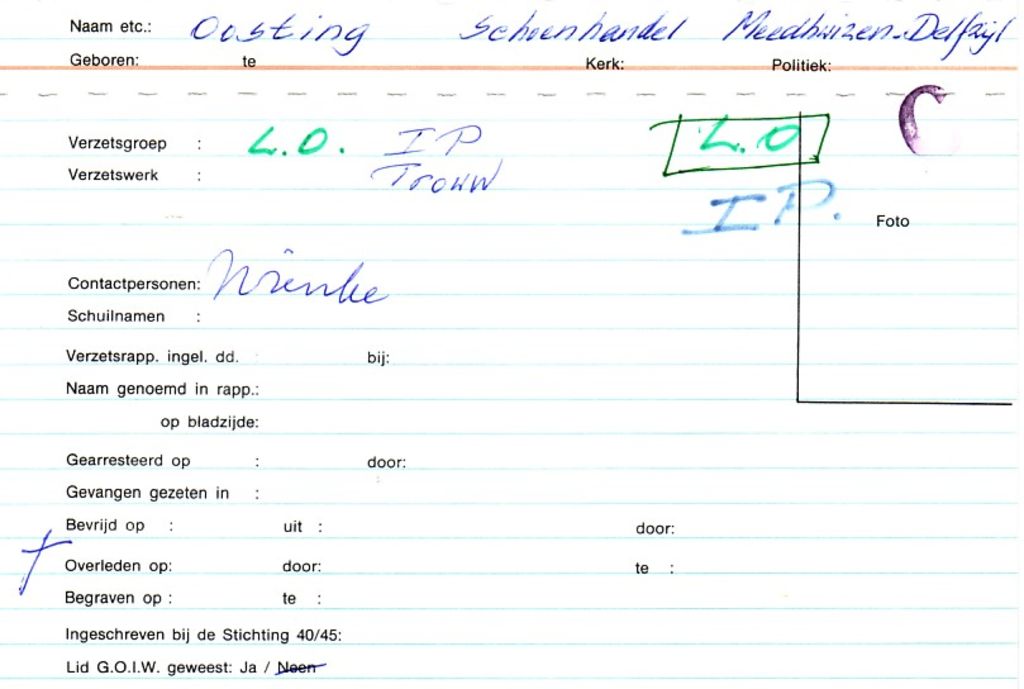 Naam etc.: Oosting Schoenhandel Meedhuizen-Delfzijl
Geboren: te Kerk: Politiek:
C
Verzetsgroep : L.O. I P L.O
Verzetswerk : Trouw I P.
Foto
Contactpersonen: Nienke
Schuilnamen :
Verzetsrapp. ingel. dd. : bij:
Naam genoemd in rapp.:
op bladzijde:
Gearresteerd op : door:
Gevangen gezeten in :
Bevrijd op : uit : door:
Overleden op: door: te :
Begraven op : te :
Ingeschreven bij de Stichting 40/45:
Lid G.O.I.W. geweest: Ja / Neen